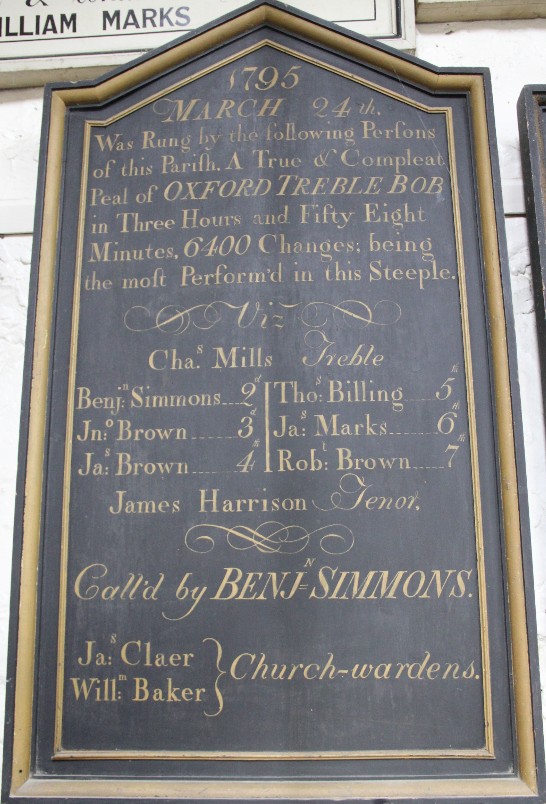 WILLIAM MARKS
1795
MARCH 24th.
Was Rung by the following Perſons
of this Pariſh, A True & Compleat
Peal of OXFORD TREBLE BOB
in Three Hours and Fifty Eight
Minutes, 6400 Changes; being
the moſt Perform'd in this Steeple.
Viz
Chaˢ. Mills Treble
Benjⁿ: Simmons 2ᵈ
Jnᵒ: Brown 3ᵈ
Jaˢ: Brown 4ᵗʰ
Thoˢ: Billing 5ᵗʰ
Jaˢ: Marks 6ᵗʰ
Robᵗ: Brown 7ᵗʰ
James Harrison Tenor.
Call'd by BENJᴺ: SIMMONS.
Jaˢ: Claer
Willᵐ: Baker
Church-wardens.